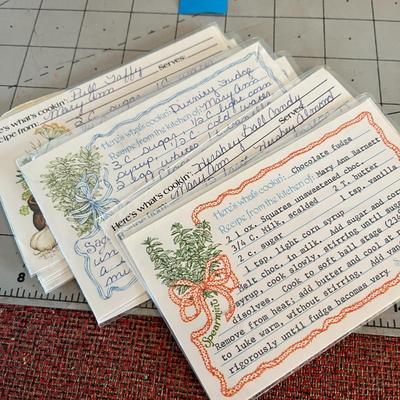 Here's what's cookin': Pull Taffy Serves:
Recipe from Mary Ann
2 C. sugar
Here's what's cookin': Divinity Fudge
Recipe from the kitchen of: Mary Ann
2 C. sugar 1/2 C. light corn
syrup 1/2 C. cold water
2 egg whites
Here's what's cookin': Hershey Ball Candy Serves
Mary Ann
Hershey Almond
Here's what's cookin': Chocolate fudge
Recipe from the kitchen of: Mary Ann Barnett
2 1 oz. Squares unsweetened choc.
3/4 c. Milk, scalded 2 T. butter
2 C. sugar 1 tsp. vanilla
1 tsp. light corn syrup
Melt choc, in milk. Add sugar and corn
syrup, cook slowly, stirring until sugar
disolves. Cook to soft ball stage
Remove from heat; add butter and cool at
to luke warm, without stirring. Add van
rigorously until fudge becomes very
Spearmint
8